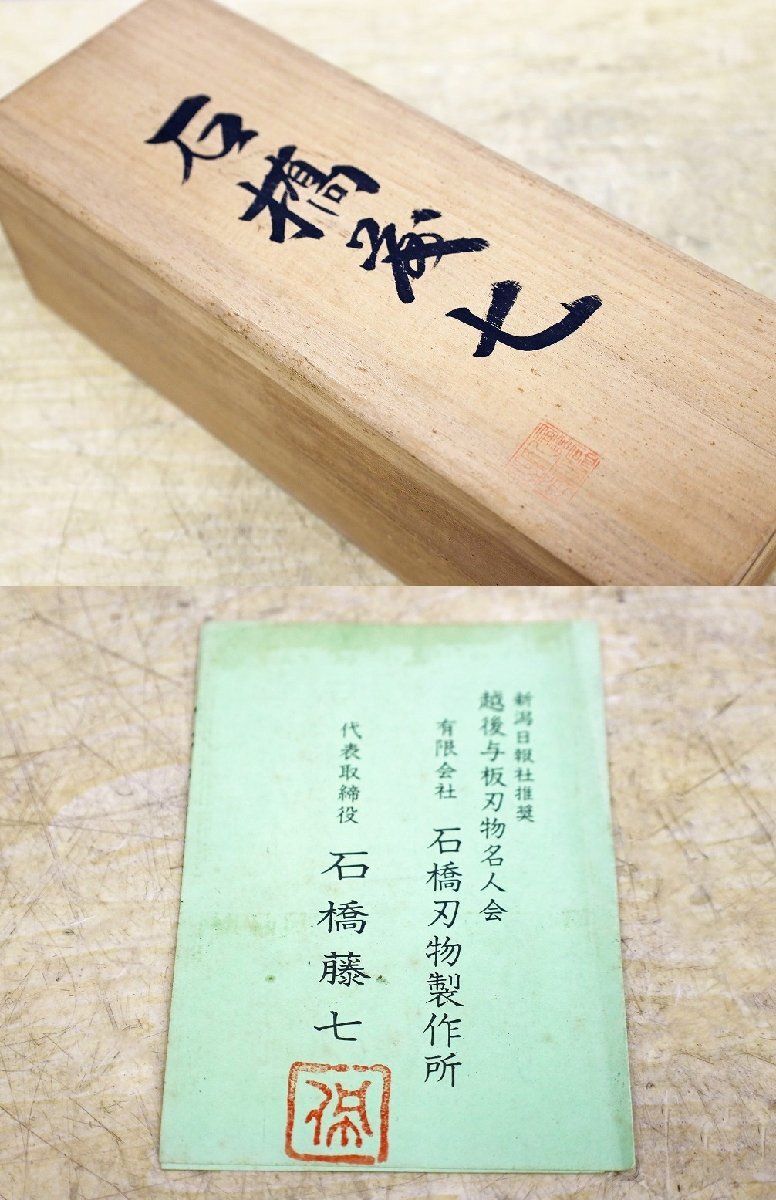 石橋藤七
新潟日報社推奨
越後与板刃物名人会
有限会社 石橋刃物製作所
代表取締役 石橋藤七
保